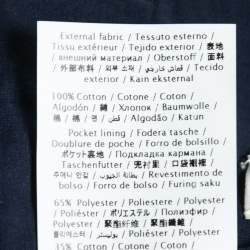 External fabric / Tessuto esterno /
Tissu extérieur / Tejido exterior / 表地
/ внешний материал / Oberstoff / 面料
/ 外部布料 / 외부 소재 / قماش خارجي / Tecido
exterior / Kain eksternal
100% Cotton / Cotone / Coton /
Algodón / 綿 / Хлопок / Baumwolle /
棉 / 棉 / 면 / قطن / Algodão / Katun
Pocket lining / Fodera tasche /
Doublure de poche / Forro de bolsillo /
ポケット裏地 / Подкладка кармана /
Taschenfutter / 兜衬里 / 口袋潮裡 /
주머니 안감 / بطانة الجيوب / Revestimento de
bolso / Forro de bolso / Furing saku
65% Polyester / Poliestere / Polyester /
Poliéster / ポリエステル / Полиэфир /
Polyester / 聚酯纤维 / 聚酯纖維 /
폴리에스테르 / بوليستر / Poliéster / Poliester
35% Cotton / Cotone / Coton /